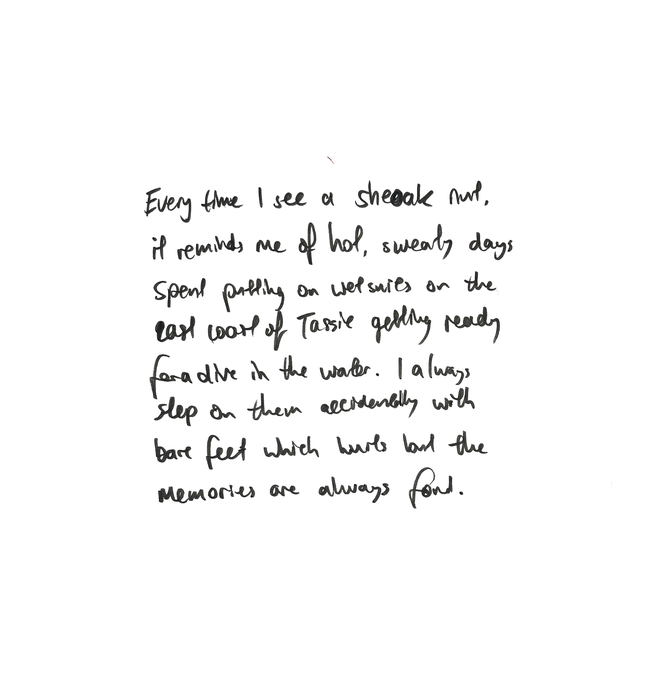 Every time I see a sheoak nut,
it reminds me of hot, sweaty days
spent putting on wetsuits on the
east coast of Tassie getting ready
for a dive in the water. I always
step on them accidentally with
bare feet which hurts but the
memories are always fond.